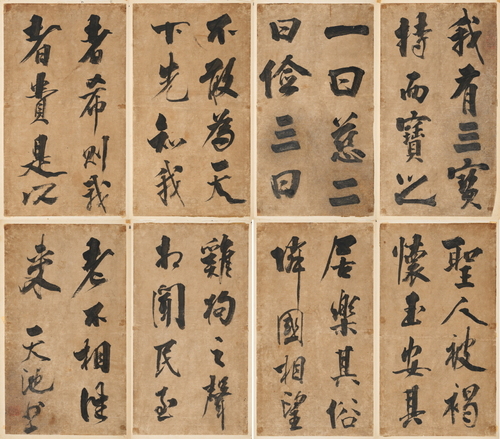 我有三寶
持而寶之
一曰慈二
曰儉三曰
不敢為天
下先知我
者希則我
者貴是以
聖人被褐
懷玉安其
居樂其俗
隣國相望
雞狗之聲
相聞民至
老不相往
来 天池書